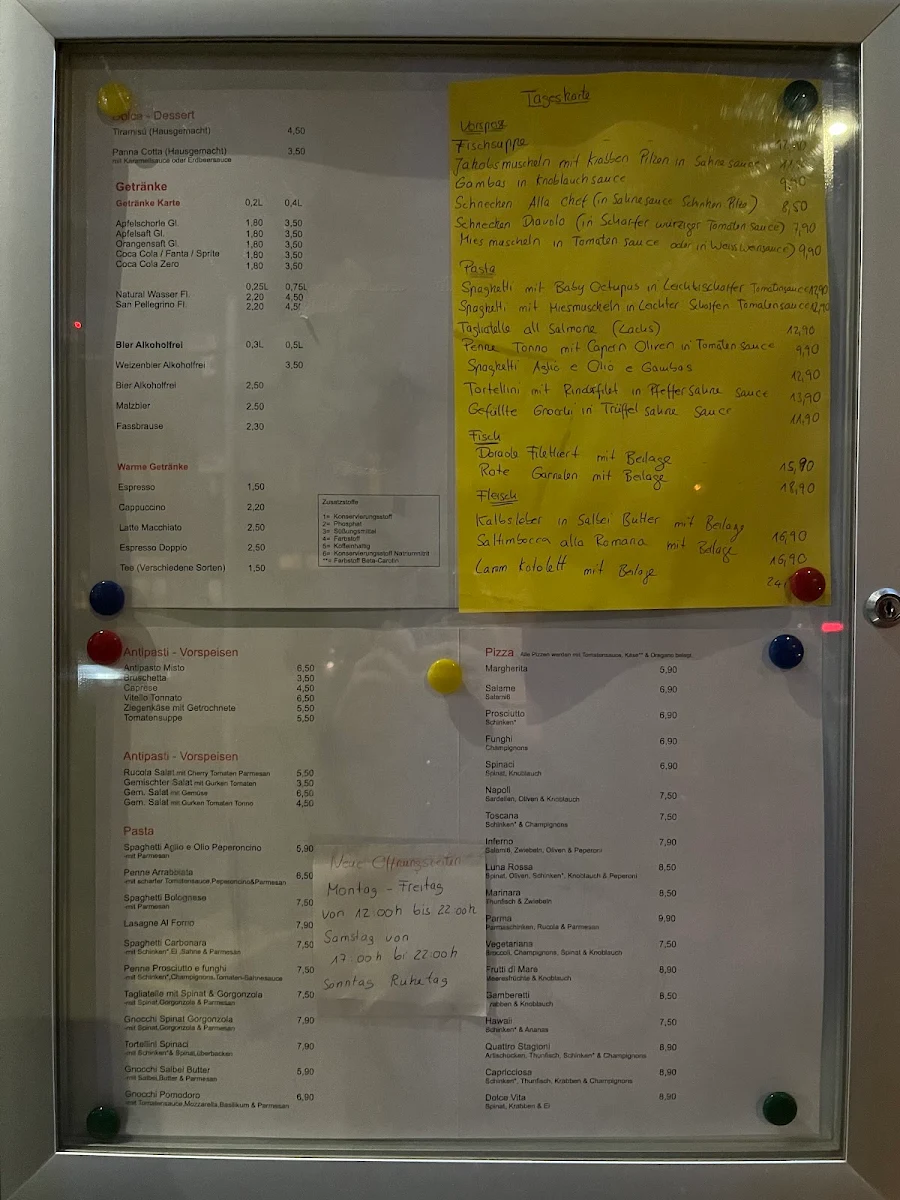 Dolce - Dessert
Tiramisú (Hausgemacht) 4,50
Panna Cotta (Hausgemacht) 3,50
mit Karamellsauce oder Erdbeersauce
Getränke
Getränke Karte 0,2L 0,4L
Apfelschorle Gl. 1,80 3,50
Apfelsaft Gl. 1,80 3,50
Orangensaft Gl. 1,80 3,50
Coca Cola / Fanta / Sprite 1,80 3,50
Coca Cola Zero 1,80 3,50
0,25L 0,75L
Natural Wasser Fl. 2,20 4,50
San Pellegrino Fl. 2,20 4,50
Bier Alkoholfrei 0,3L 0,5L
Weizenbier Alkoholfrei 3,50
Bier Alkoholfrei 2,50
Malzbier 2,50
Fassbrause 2,30
Warme Getränke
Espresso 1,50
Cappuccino 2,20
Latte Macchiato 2,50
Espresso Doppio 2,50
Tee (Verschiedene Sorten) 1,50
Zusatzstoffe
1= Konservierungsstoff
2= Phosphat
3= Süßungsmittel
4= Farbstoff
5= Koffeinhaltig
6= Konservierungsstoff Natriumnitrit
**= Farbstoff Beta-Carotin
Tageskarte
Vorspeise
Fischsuppe
Jakobsmuscheln mit Krabben Pilzen in Sahnesauce
Gambas in Knoblauchsauce 9,90
Schnecken Alla Chef (in Sahnesauce Schinken Pilze) 8,50
Schnecken Diavolo (in Scharfer würziger Tomatensauce) 7,90
Miesmuscheln in Tomaten sauce oder in Weissweinsauce) 9,90
Pasta
Spaghetti mit Baby Octupus in Leichtscharfer Tomatensauce 12,90
Spaghetti mit Miesmuscheln in Leichter Scharfen Tomatensauce 12,90
Tagliatelle all Salmone (Lachs) 12,90
Penne Tonno mit Capern Oliven in Tomaten sauce 9,90
Spaghetti Aglio e Olio e Gambas 12,90
Tortellini mit Rindsfilet in Pfeffer Sahne sauce 13,90
Gefüllte Gnocchi in Trüffel Sahne Sauce 11,90
Fisch
Dorade Filettiert mit Beilage 15,90
Rote Garnelen mit Beilage 18,90
Fleisch
Kalbsleber in Salbei Butter mit Beilage 16,90
Saltimbocca alla Romana mit Beilage 16,90
Lamm Kotolett mit Beilage
Antipasti - Vorspeisen
Antipasto Misto 6,50
Bruschetta 3,50
Caprese 4,50
Vitello Tonnato 6,50
Ziegenkäse mit Getrochnete 5,50
Tomatensuppe 5,50
Antipasti - Vorspeisen
Rucola Salat mit Cherry Tomaten Parmesan 5,50
Gemischter Salat mit Gurken Tomaten 3,50
Gem. Salat mit Gemüse 6,50
Gem. Salat mit Gurken Tomaten Tonno 4,50
Pasta
Spaghetti Aglio e Olio Peperoncino 5,90
mit Parmesan
Penne Arrabbiata 6,50
mit scharfer Tomatensauce,Peperoncino&Parmesan
Spaghetti Bolognese 7,50
mit Parmesan
Lasagne Al Forno 7,90
Spaghetti Carbonara 7,50
mit Schinken*,Ei ,Sahne & Parmesan
Penne Prosciutto e funghi 7,50
mit Schinken*,Champignons,Tomaten-Sahnesauce
Tagliatelle mit Spinat & Gorgonzola 7,50
mit Spinat,Gorgonzola & Parmesan
Gnocchi Spinat Gorgonzola 7,90
mit Spinat,Gorgonzola & Parmesan
Tortellini Spinaci 7,90
mit Schinken*& Spinat,überbacken
Gnocchi Salbei Butter 5,90
mit Salbei,Butter & Parmesan
Gnocchi Pomodoro 6,90
mit Tomatensauce,Mozzarella,Basilikum & Parmesan
Neue Öffnungszeiten
Montag - Freitag
von 12:00h bis 22:00h
Samstag von
17:00h bis 22:00h
Sonntag Ruhetag
Pizza Alle Pizzen werden mit Tomatensauce, Käse** & Oregano belegt.
Margherita 5,90
Salame 6,90
Salami6
Prosciutto 6,90
Schinken*
Funghi 6,90
Champignons
Spinaci 6,90
Spinat, Knoblauch
Napoli 7,50
Sardellen, Oliven & Knoblauch
Toscana 7,50
Schinken* & Champignons
Inferno 7,90
Salami6, Zwiebeln, Oliven & Peperoni
Luna Rossa 8,50
Spinat, Oliven, Schinken*, Knoblauch & Peperoni
Marinara 8,50
Thunfisch & Zwiebeln
Parma 9,90
Parmaschinken, Rucola & Parmesan
Vegetariana 7,50
Broccoli, Champignons, Spinat & Knoblauch
Frutti di Mare 8,90
Meeresfrüchte & Knoblauch
Gamberetti 8,50
Krabben & Knoblauch
Hawaii 7,50
Schinken* & Ananas
Quattro Stagioni 8,90
Artischocken, Thunfisch, Schinken* & Champignons
Capricciosa 8,90
Schinken*, Thunfisch, Krabben & Champignons
Dolce Vita 8,90
Spinat, Krabben & Ei